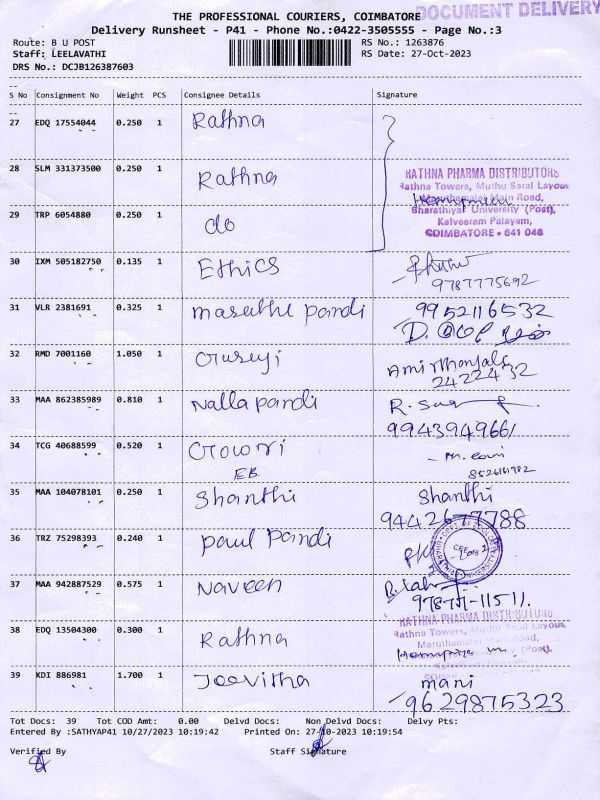 THE PROFESSIONAL COURIERS, COIMBATORE
DOCUMENT DELIVERY
Delivery Runsheet - P41 - Phone No.:0422-3505555 - Page No.:3
Route: B U POST
RS No.: 1263876
Staff: LEELAVATHI
RS Date: 27-Oct-2023
DRS No.: DCJB126387603
S No Consignment No Weight PCS Consignee Details Signature
27 EDQ 17554044 0.250 1 Rathna
28 SLM 331373500 0.250 1 Rathna
RATHNA PHARMA DISTRIBUTORS
Rathna Towers, Muthu Saral Layout
Maruthamalai Main Road,
29 TRP 6054880 0.250 1 do
Bharathiyar University (Post),
Kalveeram Palayam,
COIMBATORE - 641 046
30 IXM 505182750 0.135 1 Ethics
9787775692
31 VLR 2381691 0.325 1 marathi pandi 9952116532
32 RMD 7001160 1.050 1
2422432
33 MAA 862385989 0.810 1 Nalla pandi
9943949661
34 TCG 40688599 0.520 1 Gowri
EB
8526181982
35 MAA 104078101 0.250 1 Shanthi Shanthi
9442677788
36 TRZ 75298393 0.240 1 paul pandi
37 MAA 942887529 0.575 1 Naveen
11511.
RATHNA PHARMA DISTRIBUTORS
38 EDQ 13504300 0.300 1 Rathna
Rathna Towers, Muthu Saral Layout
Maruthamalai Main Road,
39 KDI 886981 1.700 1 Jeevitha mani
9629875323
Tot Docs: 39 Tot COD Amt: 0.00 Delvd Docs: Non Delvd Docs: Delvy Pts:
Entered By :SATHYAP41 10/27/2023 10:19:42 Printed On: 27-10-2023 10:19:54
Verified By Staff Signature